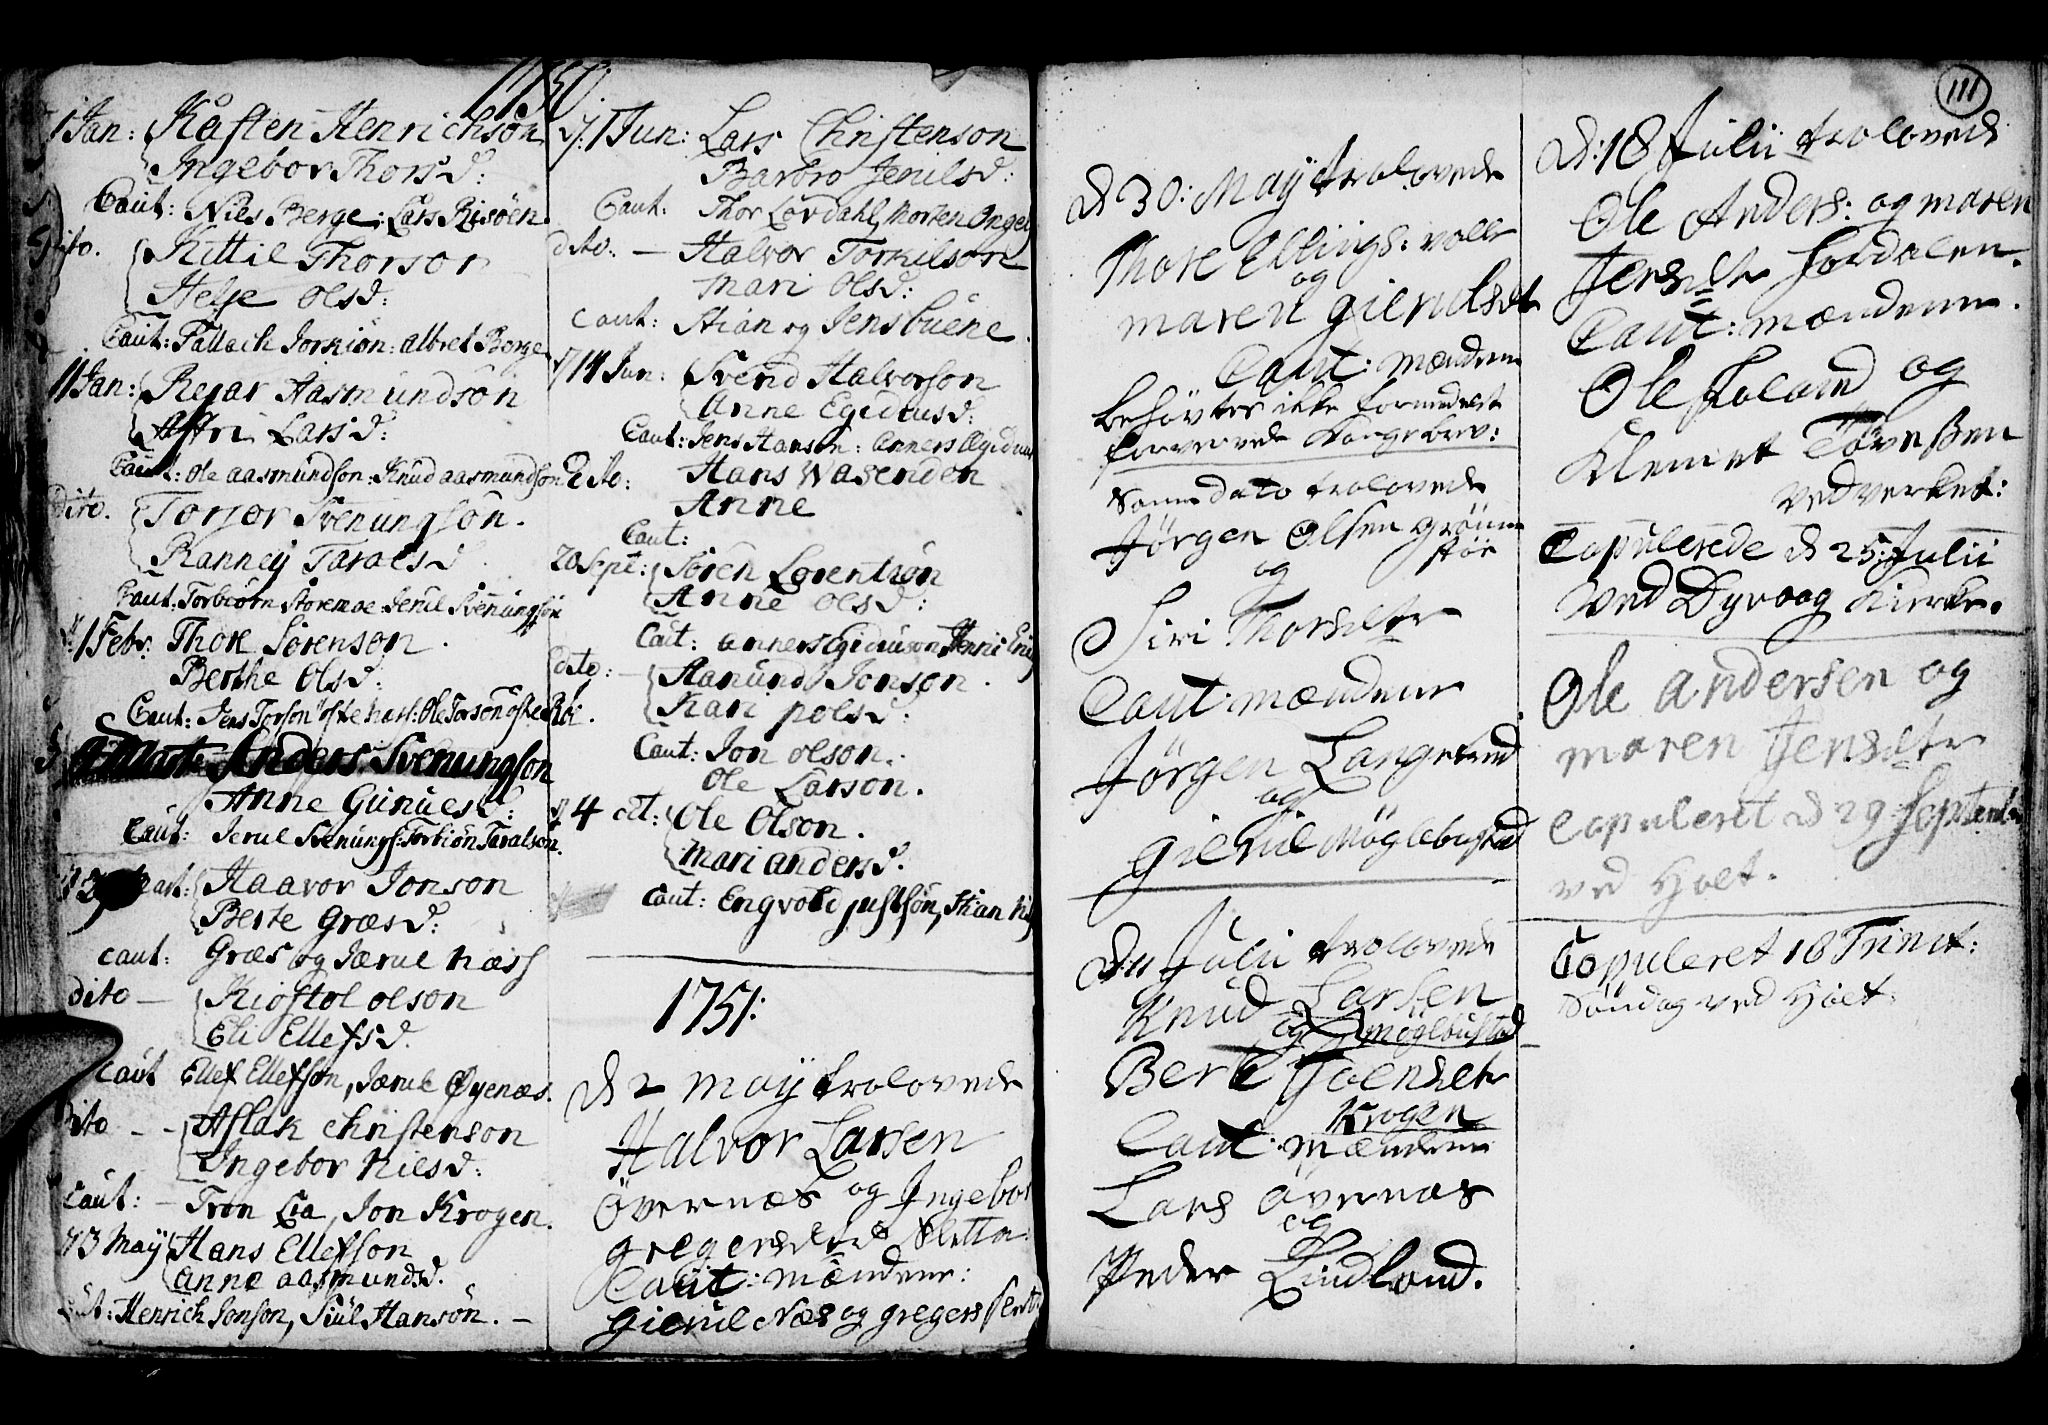 1750:
1 Jan: Kaften Henrichsøn
Ingebor Thorsd:
Caut: Niels Berge: Lars Risöen
Dito. Kittil Thorson
Helje Olsd:
Caut: Tallack Torkiön: Albret Berge
11 Jan: Rejar Aasmundsön
Affri Larsd:
Caut: Ole Aasmundsøn: Knud Aasmundsøn
Dito. Torjor Svenungsön.
Ranney Taraldsd
Caut: Torbiörn Storenæ Jerul Svenungsøn
1 Febr: Thor Sörenson.
Berthe Olsd:
Caut: Jens Torson ofte Næss: Ole Torson ofte Röi.
Marti Anders Svenungson
Anne Gunuesd:
Caut: Jerul Svenungs: Torbiön Taralson.
Mart: Haavor Jonson
Berte Græsd:
caut: Græs og Jærul Næss
dito — Kiøstol olson
Eli Ellefsd.
Caut Ellef Ellefsøn, Jærul Øyenæs.
Dito - - Aslak Christenson
Ingebor Nilsd:
Caut: - Tron Lia, Jon Krogen.
3 May Hans Ellefson
Anne Aasmundsd.
Caut: Henrich Jonson, Siul Hansön. —
d. 1 Jun: Lars Christenson
Barbro Jerulsd:
Caut. Thor Lövdahl, Morten Ongel
dito. — Halvor Torkilson
Mari Olsd:
Caut: Stian og Jens buene.
14 Jun: Svend Halvorson
Anne Egidiusd:
Caut: Jens Hanson: Anners Ægidius
Dito: Hans Wasenden
Anne
Caut:
20 Sept: Sören Lorentsön
Anne olsd:
Caut: Anners Egidiuson Henric
dito: — Aanund Jonson.
Kari polsd:
Caut: Jon olson.
Ole Larson.
d. 4 oct: Ole Olson.
Mari andersd.
Caut: Engvold justsön, Stian
1751:
D 2 may trolovede
Halvor Larsen
Övernæs og Ingebor
gregersdtr Sletta.
Caut: mændene:
gierul Næs og gregers Slett
D 30: May trolovede
Thore Ellings: valle
og
maren gierulsdtr
Caut: mændene
behövtes ikke formedelst
forevevede Kongebrev:
Samme dato trolovede
Jørgen Olsen grönne
stöe
og
Siri Thorsdtr
Caut: mændene
Jørgen Langeland
og
gierul Møglebustad
D: 11 Julii trolovede
Knud Larsen
og Møglebustad
Berte Joensdtr
Krogen
Caut: mændene
Lars övernæs
og
Peder Lindland.
111
D: 18 Julii trolovede
Ole Anders: og maren
Jensdtr Fordalen.
Caut: mændene.
Ole Foland og
Klemet Tøvessen
ved verket:
Copulerede D 25 Julii
ved Dyvaag Kirke.
Ole Andersen og
maren Jensdtr
Copuleret D 29 September
ved Holt.
Copuleret 16 Trinit:
Söndag ved Holt.